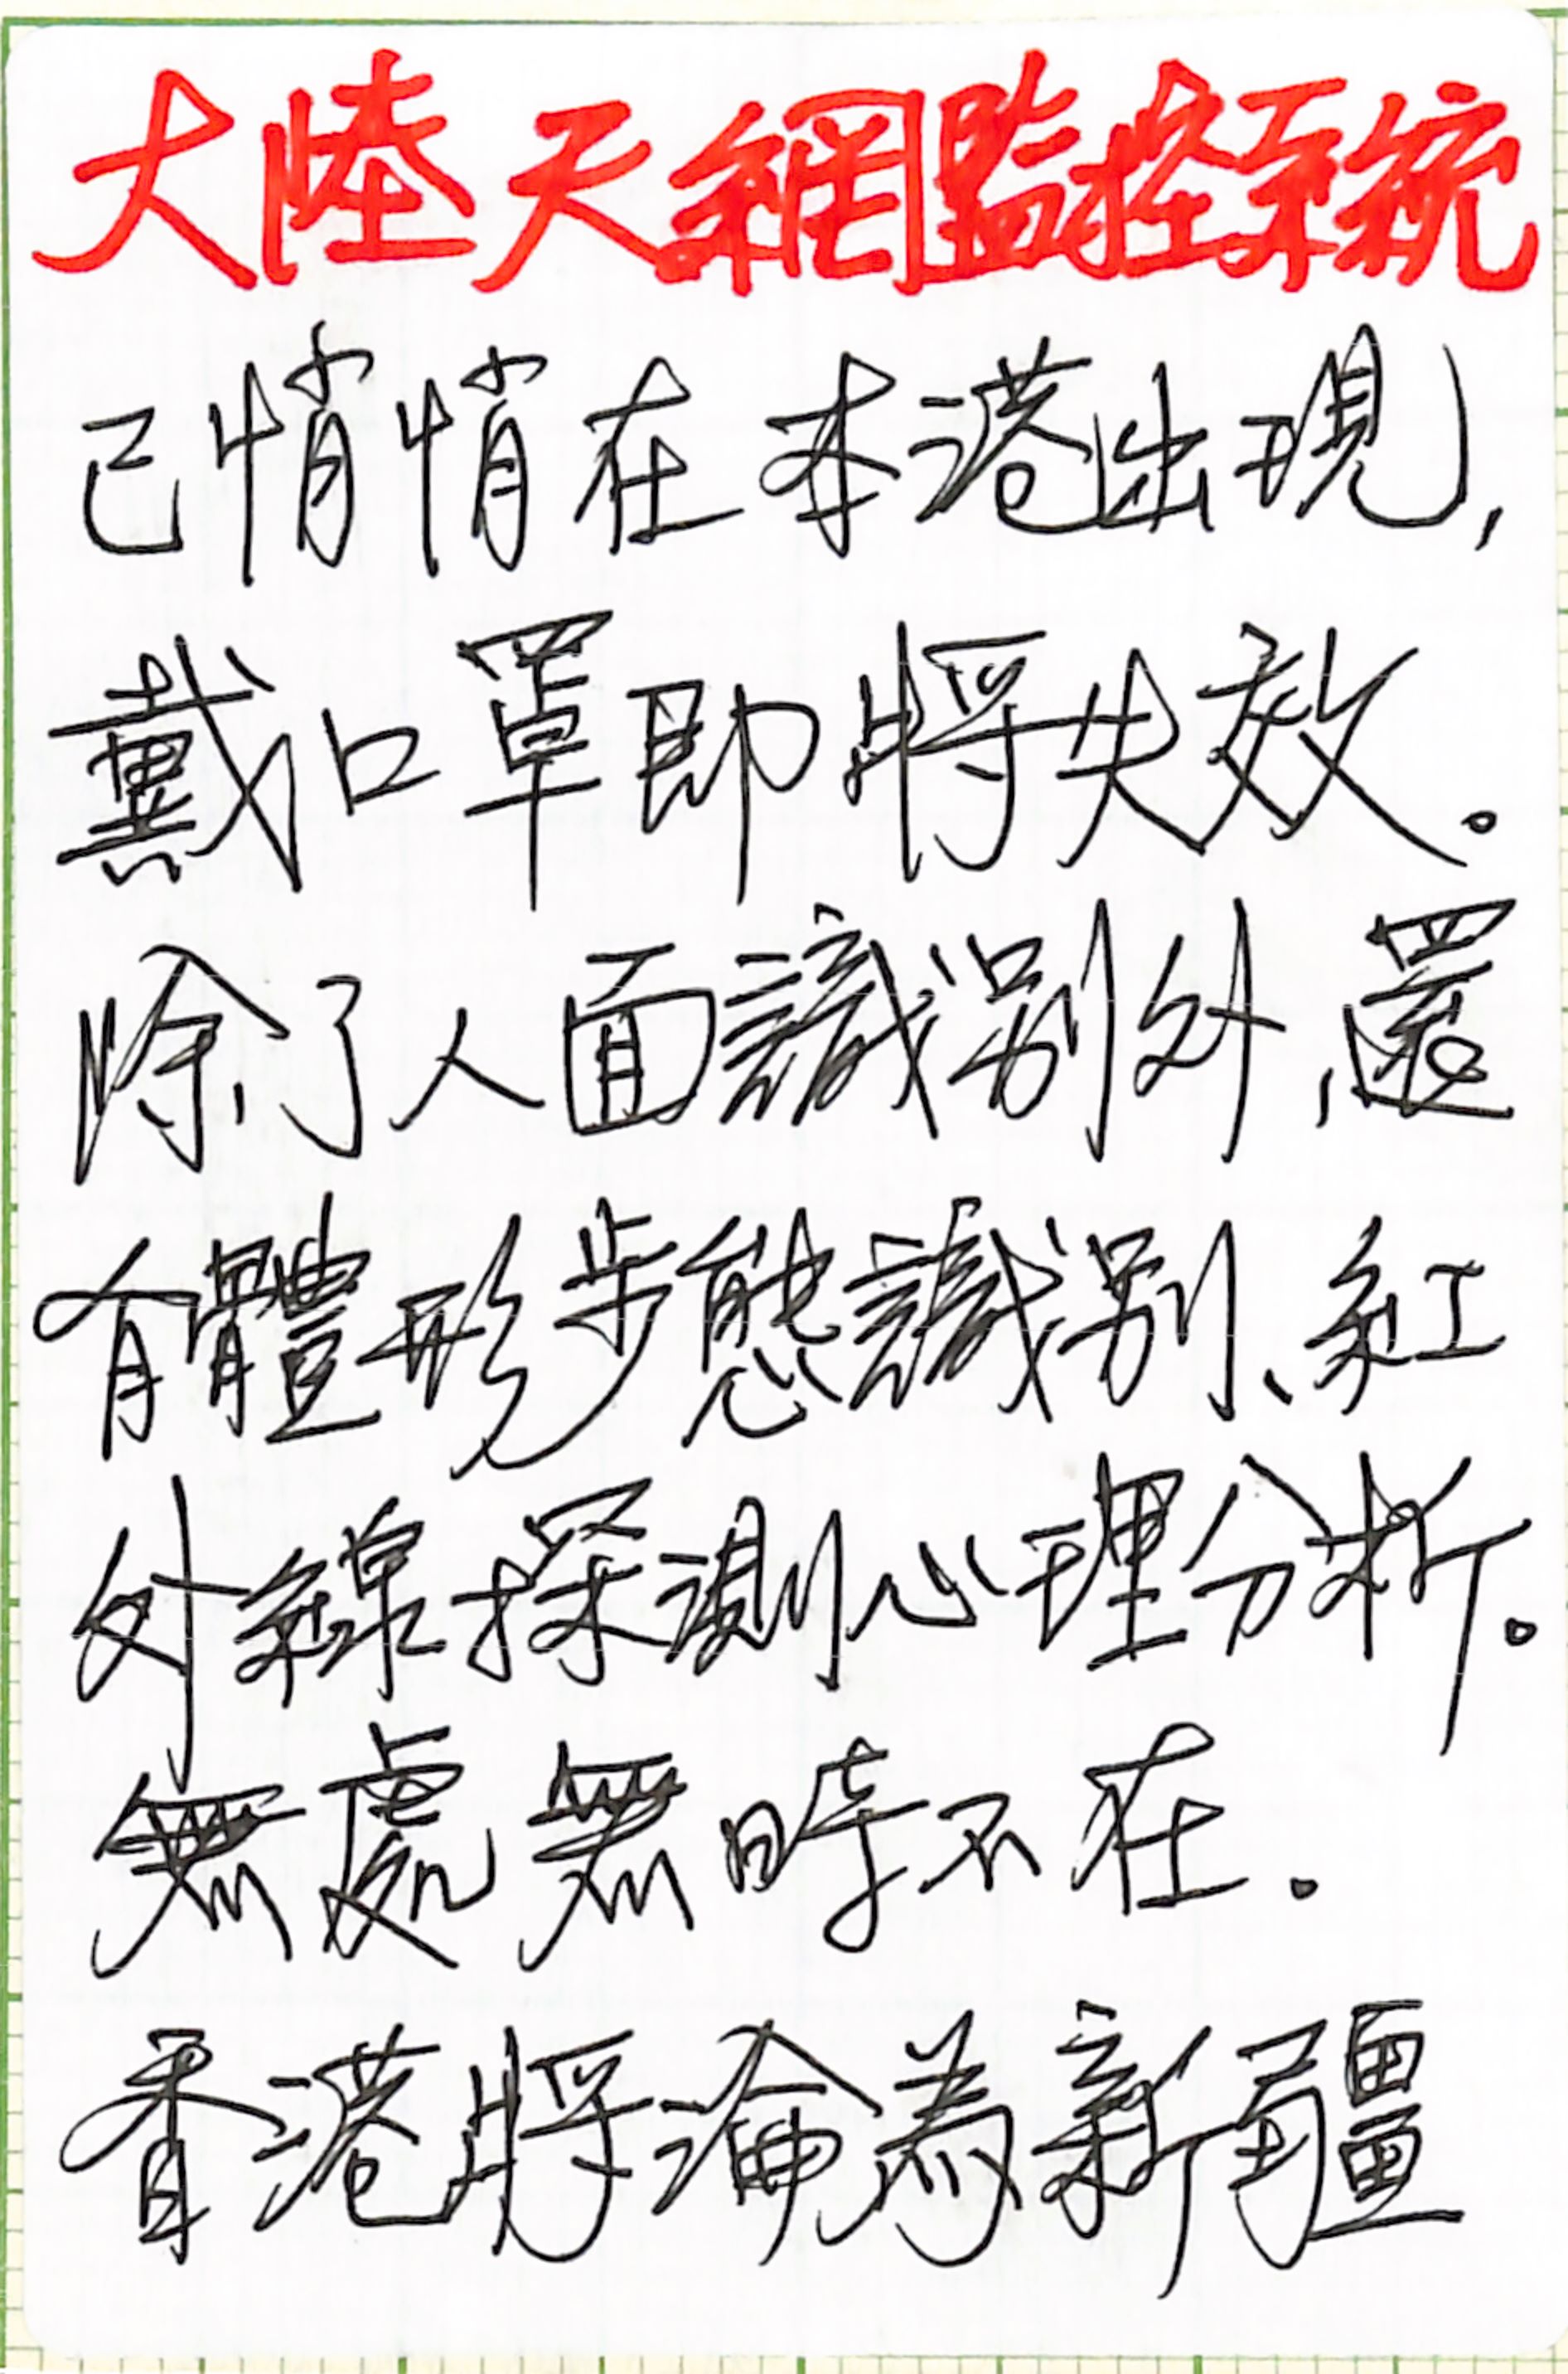 大陸天網監控系統
已悄悄在本港出現,
戴口罩即將失效。
除了人面識別外,還
有體形步態識別、紅
外線探測心理分析。
無處無時不在.
香港將淪為新疆